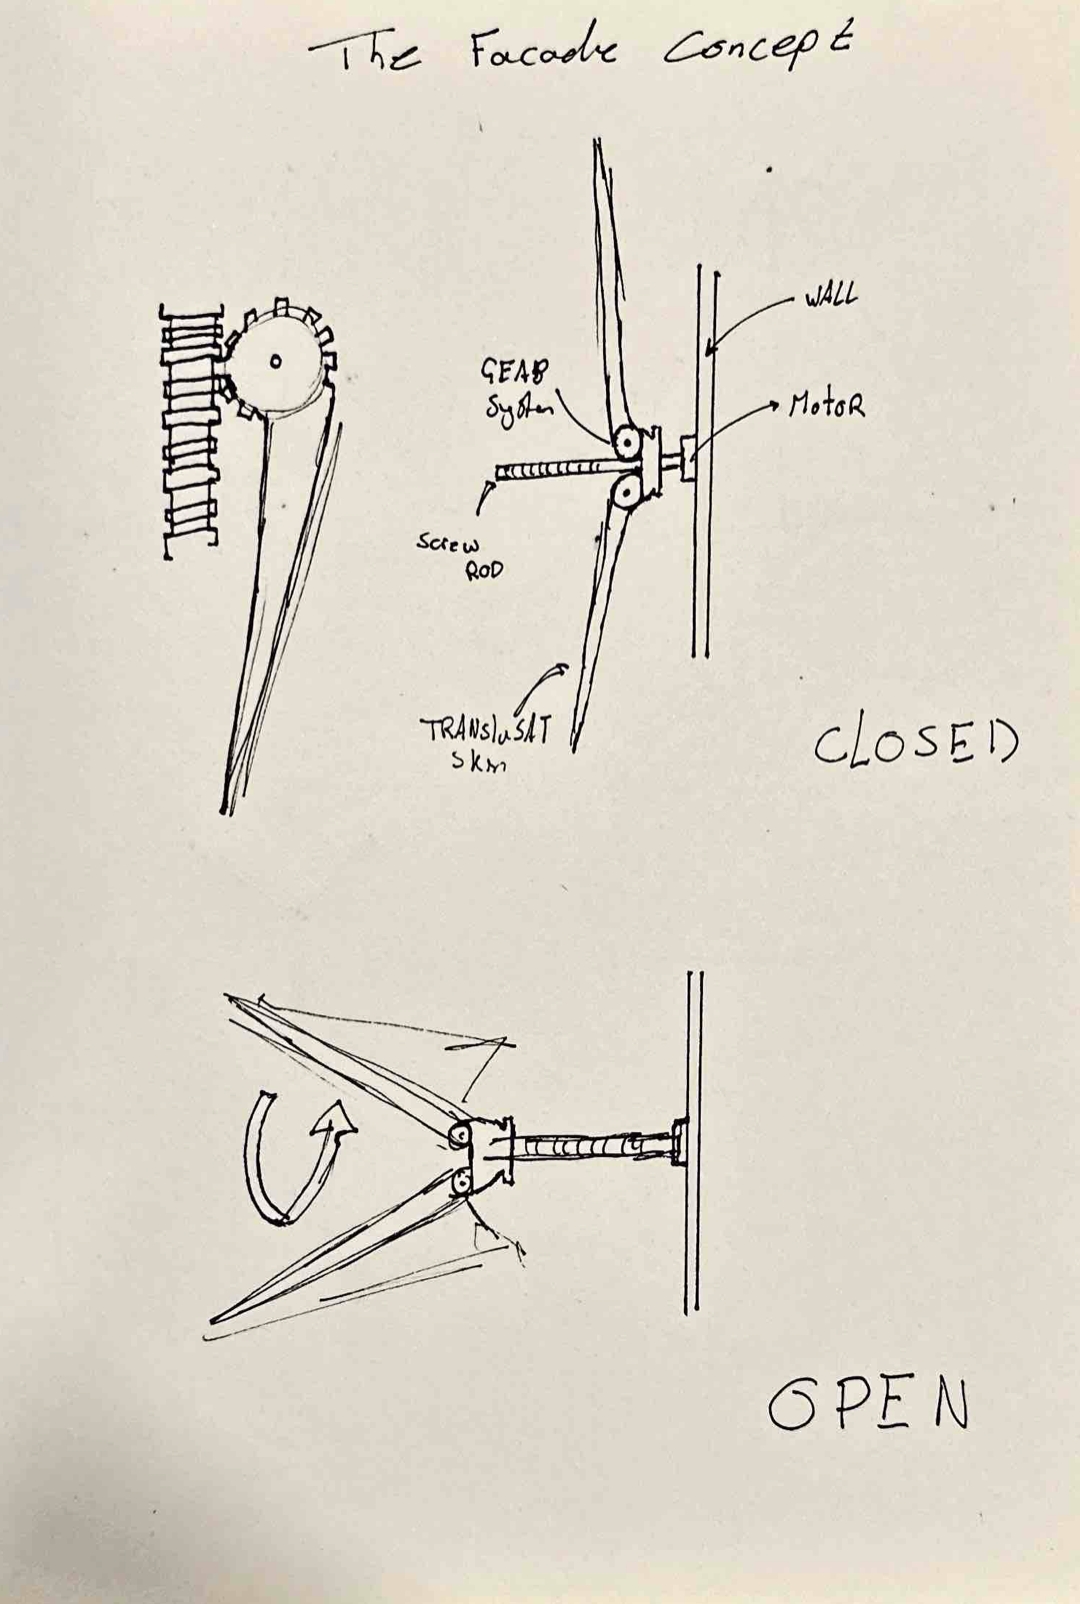 The Facade Concept
WALL
GEAR
System
MotoR
Screw
ROD
TRANSluSAT
Skin
CLOSED
OPEN